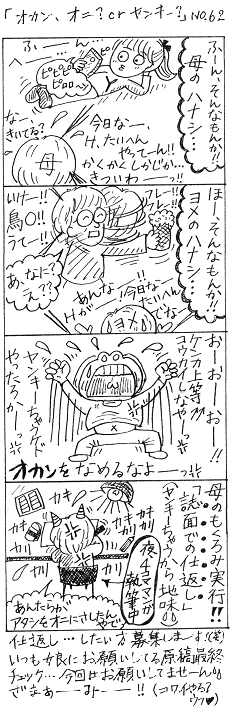 「オカン、オニ?orヤンキー?」NO.62
ふーん、そんなもんか!!
母のハナシ…
ふーん…
ピピピ
ピロロ
なー、
きいてる?
今日なー、
H、たいへん
やってーん!!
かくかくしかじか…
きついわーっ!!
母
ほー、そんなもんか!!
ヨメのハナシ…
フレー!!
フレー!!
いけー!!
鳥〇!!
うてー!!
あ、なに?
え??
あんな!今日なー
Hがたいへんでな
ヨメ
おーおーおー!!
ケンカ上等!!
コウカイしなやーっ
ヤンキーちゃうケド
やったろかーっ
オカンをなめるなよーっ
母のもくろみ実行!!
「誌面での仕返し」
(ヤンキーちゃうから地味)
カキ
カキ
カリ
カリ
夜4コママンガ
執筆中
あんたらが
アタシをオニにさしたんやで
仕返し…したい方募集しまーす!(笑)
いつも娘にお願いしてる原稿最終
チェック…今回はお願いしてませーん!
ざまぁーみーー!!(コワイやろ?ウフ♥)